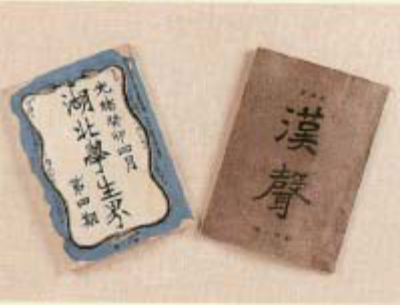 光緒癸卯四月
湖北學生界
第四期
漢聲